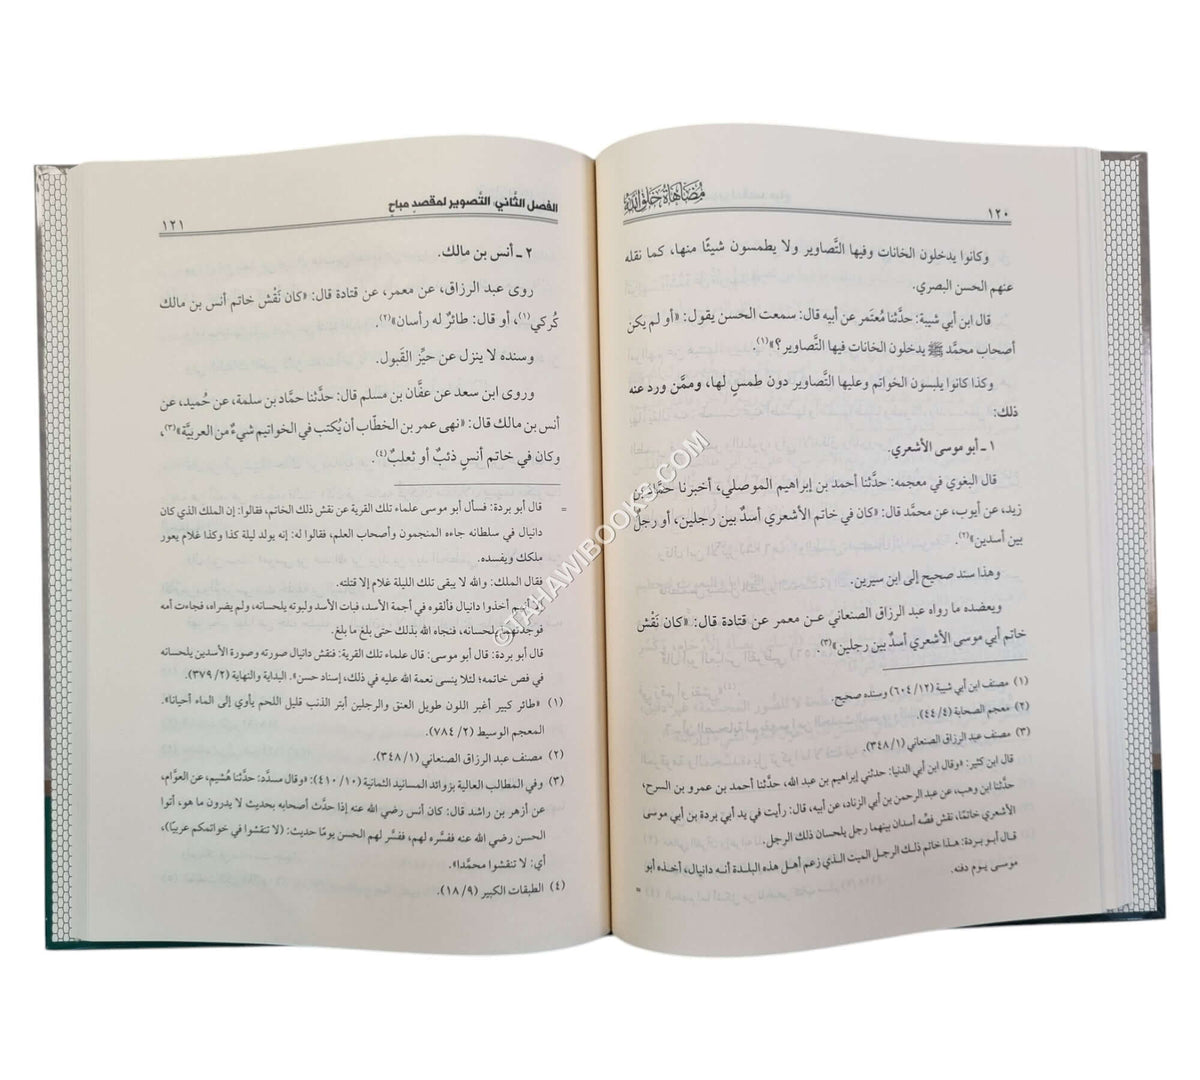 مُضَاهَاةُ خَلْقِ اللَّهِ
١٢٠
وكانوا يدخلون الخانات وفيها التَّصاوير ولا يطمسون شيئًا منها، كما نقله
عنهم الحسن البصري.
قال ابن أبي شيبة: حدَّثنا مُعتَمر عن أبيه قال: سمعت الحسن يقول: «أو لم يكن
أصحاب محمَّد ﷺ يدخلون الخانات فيها التَّصاوير؟»(١).
وكذا كانوا يلبسون الخواتم وعليها التَّصاوير دون طمسٍ لها، وممَّن ورد عنه
ذلك:
١ ـ أبو موسى الأشعري.
قال البغوي في معجمه: حدَّثنا أحمد بن إبراهيم الموصلي، أخبرنا حمَّاد بن
زيد، عن أيوب، عن محمَّد قال: «كان في خاتم الأشعري أسدٌ بين رجلين، أو رجلٌ
بين أسدين»(٢).
وهذا سند صحيح إلى ابن سيرين.
ويعضده ما رواه عبد الرزاق الصنعاني عن معمر عن قتادة قال: «كان نَقْش
خاتم أبي موسى الأشعري أسدٌ بين رجلين»(٣).
(١) مصنف ابن أبي شيبة (١٢/ ٦٠٤) وسنده صحيح.
(٢) معجم الصحابة (٤/ ٤٤).
(٣) مصنف عبد الرزاق الصنعاني (١/ ٣٤٨).
قال ابن كثير: «وقال ابن أبي الدنيا: حدثني إبراهيم بن عبد الله، حدَّثنا أحمد بن عمرو بن السرح،
حدَّثنا ابن وهب، عن عبد الرحمن بن أبي الزناد، عن أبيه، قال: رأيت في يد أبي بردة بن أبي موسى
الأشعري خاتمًا، نقش فصّه أسدان بينهما رجل يلحسان ذلك الرجل.
قال أبو بردة: هذا خاتم ذلك الرجل الميت الذي زعم أهل هذه البلدة أنه دانيال، أخذه أبو
موسى يوم دفنه.
=
الفصل الثَّاني: التَّصوير لمقصدٍ مباح
١٢١
٢ ـ أنس بن مالك.
روى عبد الرزاق، عن معمر، عن قتادة قال: «كان نَقْش خاتم أنس بن مالك
كُركي(١)، أو قال: طائرٌ له رأسان»(٢).
وسنده لا ينزل عن حيِّز القَبول.
وروى ابن سعد عن عفَّان بن مسلم قال: حدَّثنا حمَّاد بن سلمة، عن حُميد، عن
أنس بن مالك قال: «نهى عمر بن الخطّاب أن يُكتب في الخواتيم شيءٌ من العربيَّة»(٣)،
وكان في خاتم أنسٍ ذئبٌ أو ثعلبٌ(٤).
= قال أبو بردة: فسأل أبو موسى علماء تلك القرية عن نقش ذلك الخاتم، فقالوا: إن الملك الذي كان
دانيال في سلطانه جاءه المنجمون وأصحاب العلم، فقالوا له: إنه يولد ليلة كذا وكذا غلام يعور
ملكك ويفسده.
فقال الملك: والله لا يبقى تلك الليلة غلام إلا قتلته.
أخذوا دانيال فألقوه في أجمة الأسد، فبات الأسد ولبوته يلحسانه، ولم يضراه، فجاءت أمه
فوجدتهما يلحسانه، فنجاه الله بذلك حتى بلغ ما بلغ.
قال أبو بردة: قال أبو موسى: قال علماء تلك القرية: فنقش دانيال صورته وصورة الأسدين يلحسانه
في فص خاتمه؛ لئلا ينسى نعمة الله عليه في ذلك، إسناد حسن». البداية والنهاية (٢/ ٣٧٩).
(١) «طائر كبير أغبر اللون طويل العنق والرجلين أبتر الذنب قليل اللحم يأوي إلى الماء أحيانا».
المعجم الوسيط (٢/ ٧٨٤).
(٢) مصنف عبد الرزاق الصنعاني (١/ ٣٤٨).
(٣) وفي المطالب العالية بزوائد المسانيد الثمانية (١٠/ ٤١٠): «وقال مسدَّد: حدَّثنا هُشيم، عن العوَّام،
عن أزهر بن راشد قال: كان أنس رضي الله عنه إذا حدَّث أصحابه بحديث لا يدرون ما هو، أتوا
الحسن رضي الله عنه ففسَّره لهم، ففسَّر لهم الحسن يومًا حديث: (لا تنقشوا في خواتمكم عربيًا)،
أي: لا تنقشوا محمَّدا».
(٤) الطبقات الكبير (٩/ ١٨).
©TAHAWIBOOKS.COM